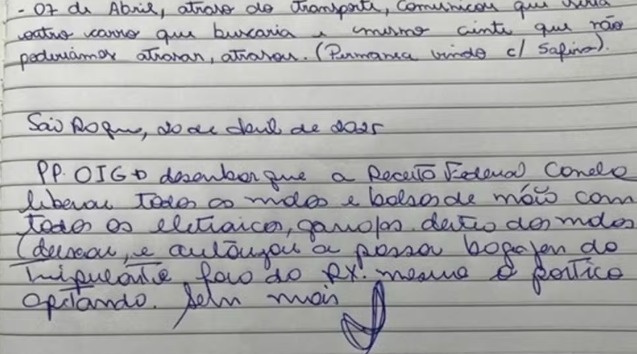 - 07 de Abril, atraso do transporte, comunicou que viria
outro carro que buscaria e mesmo cinte que não
poderiamos atrasar, atrasou. (Permanea vindo c/ Safira).
São Roque, 20 de abril de 2025
PP. OIGD desembarque a Receita Federal Conelo
liberou todos os malas e bolsas de mão com
todos os eletraicos, garrafas dentro das malas
(deixou, e autorizou a passar bagagem do
tripulante fora do RX. mesmo o portico
apitando. Sem mais